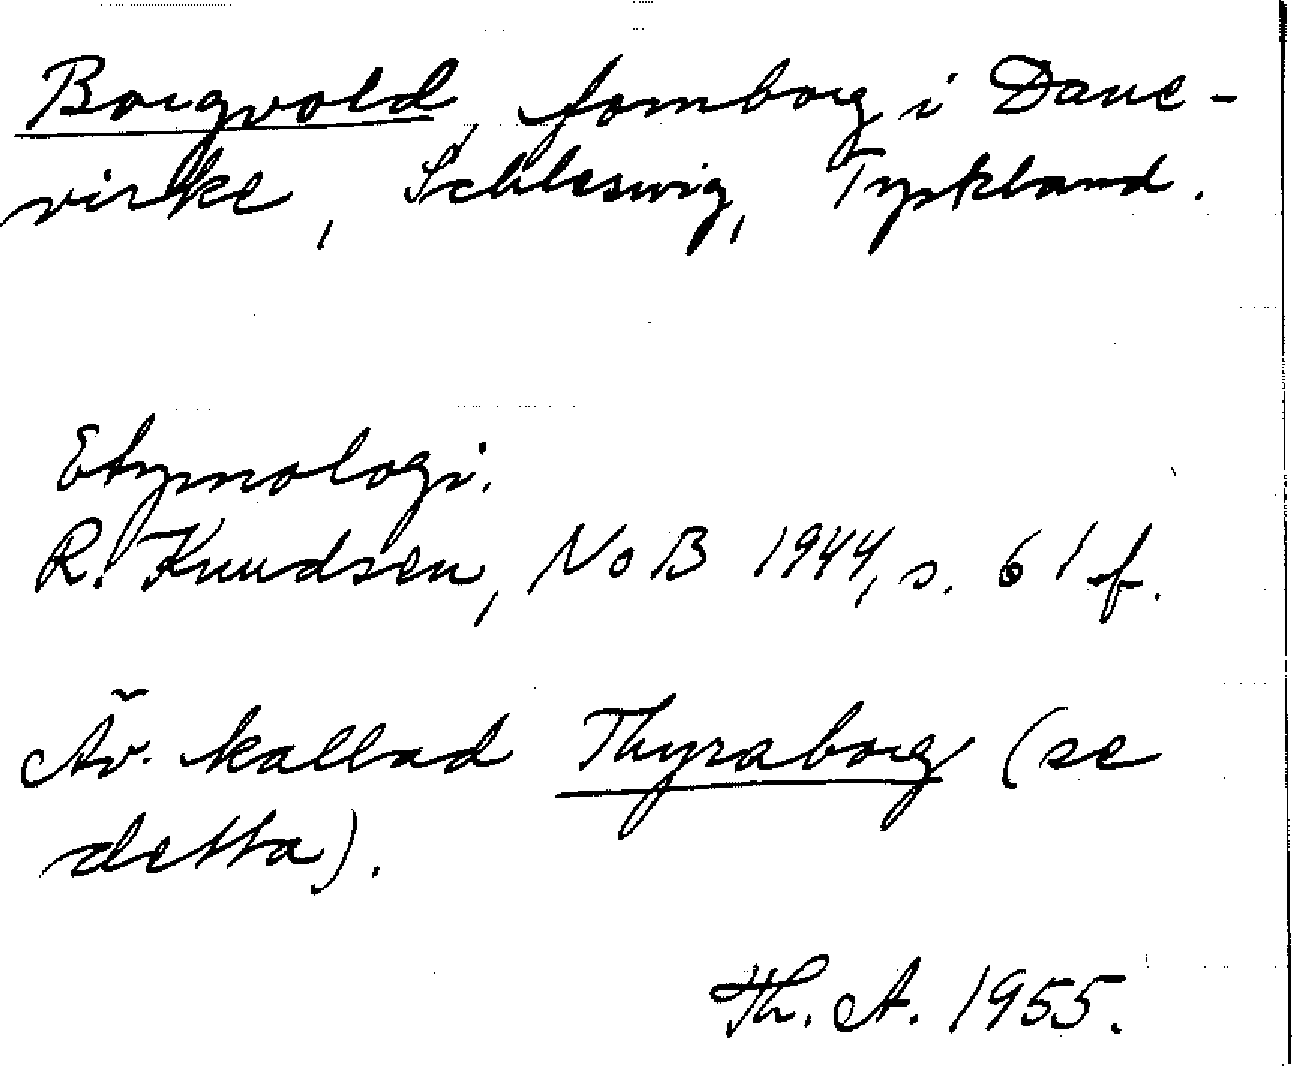 Borgvold, fornborg i Dane-
virke, Schleswig, Tyskland.
Etymologi.
R. Knudsen, NoB 1944, s. 61 f.
Äv. kallad Thyraborg (se
detta).
Th. A. 1955.